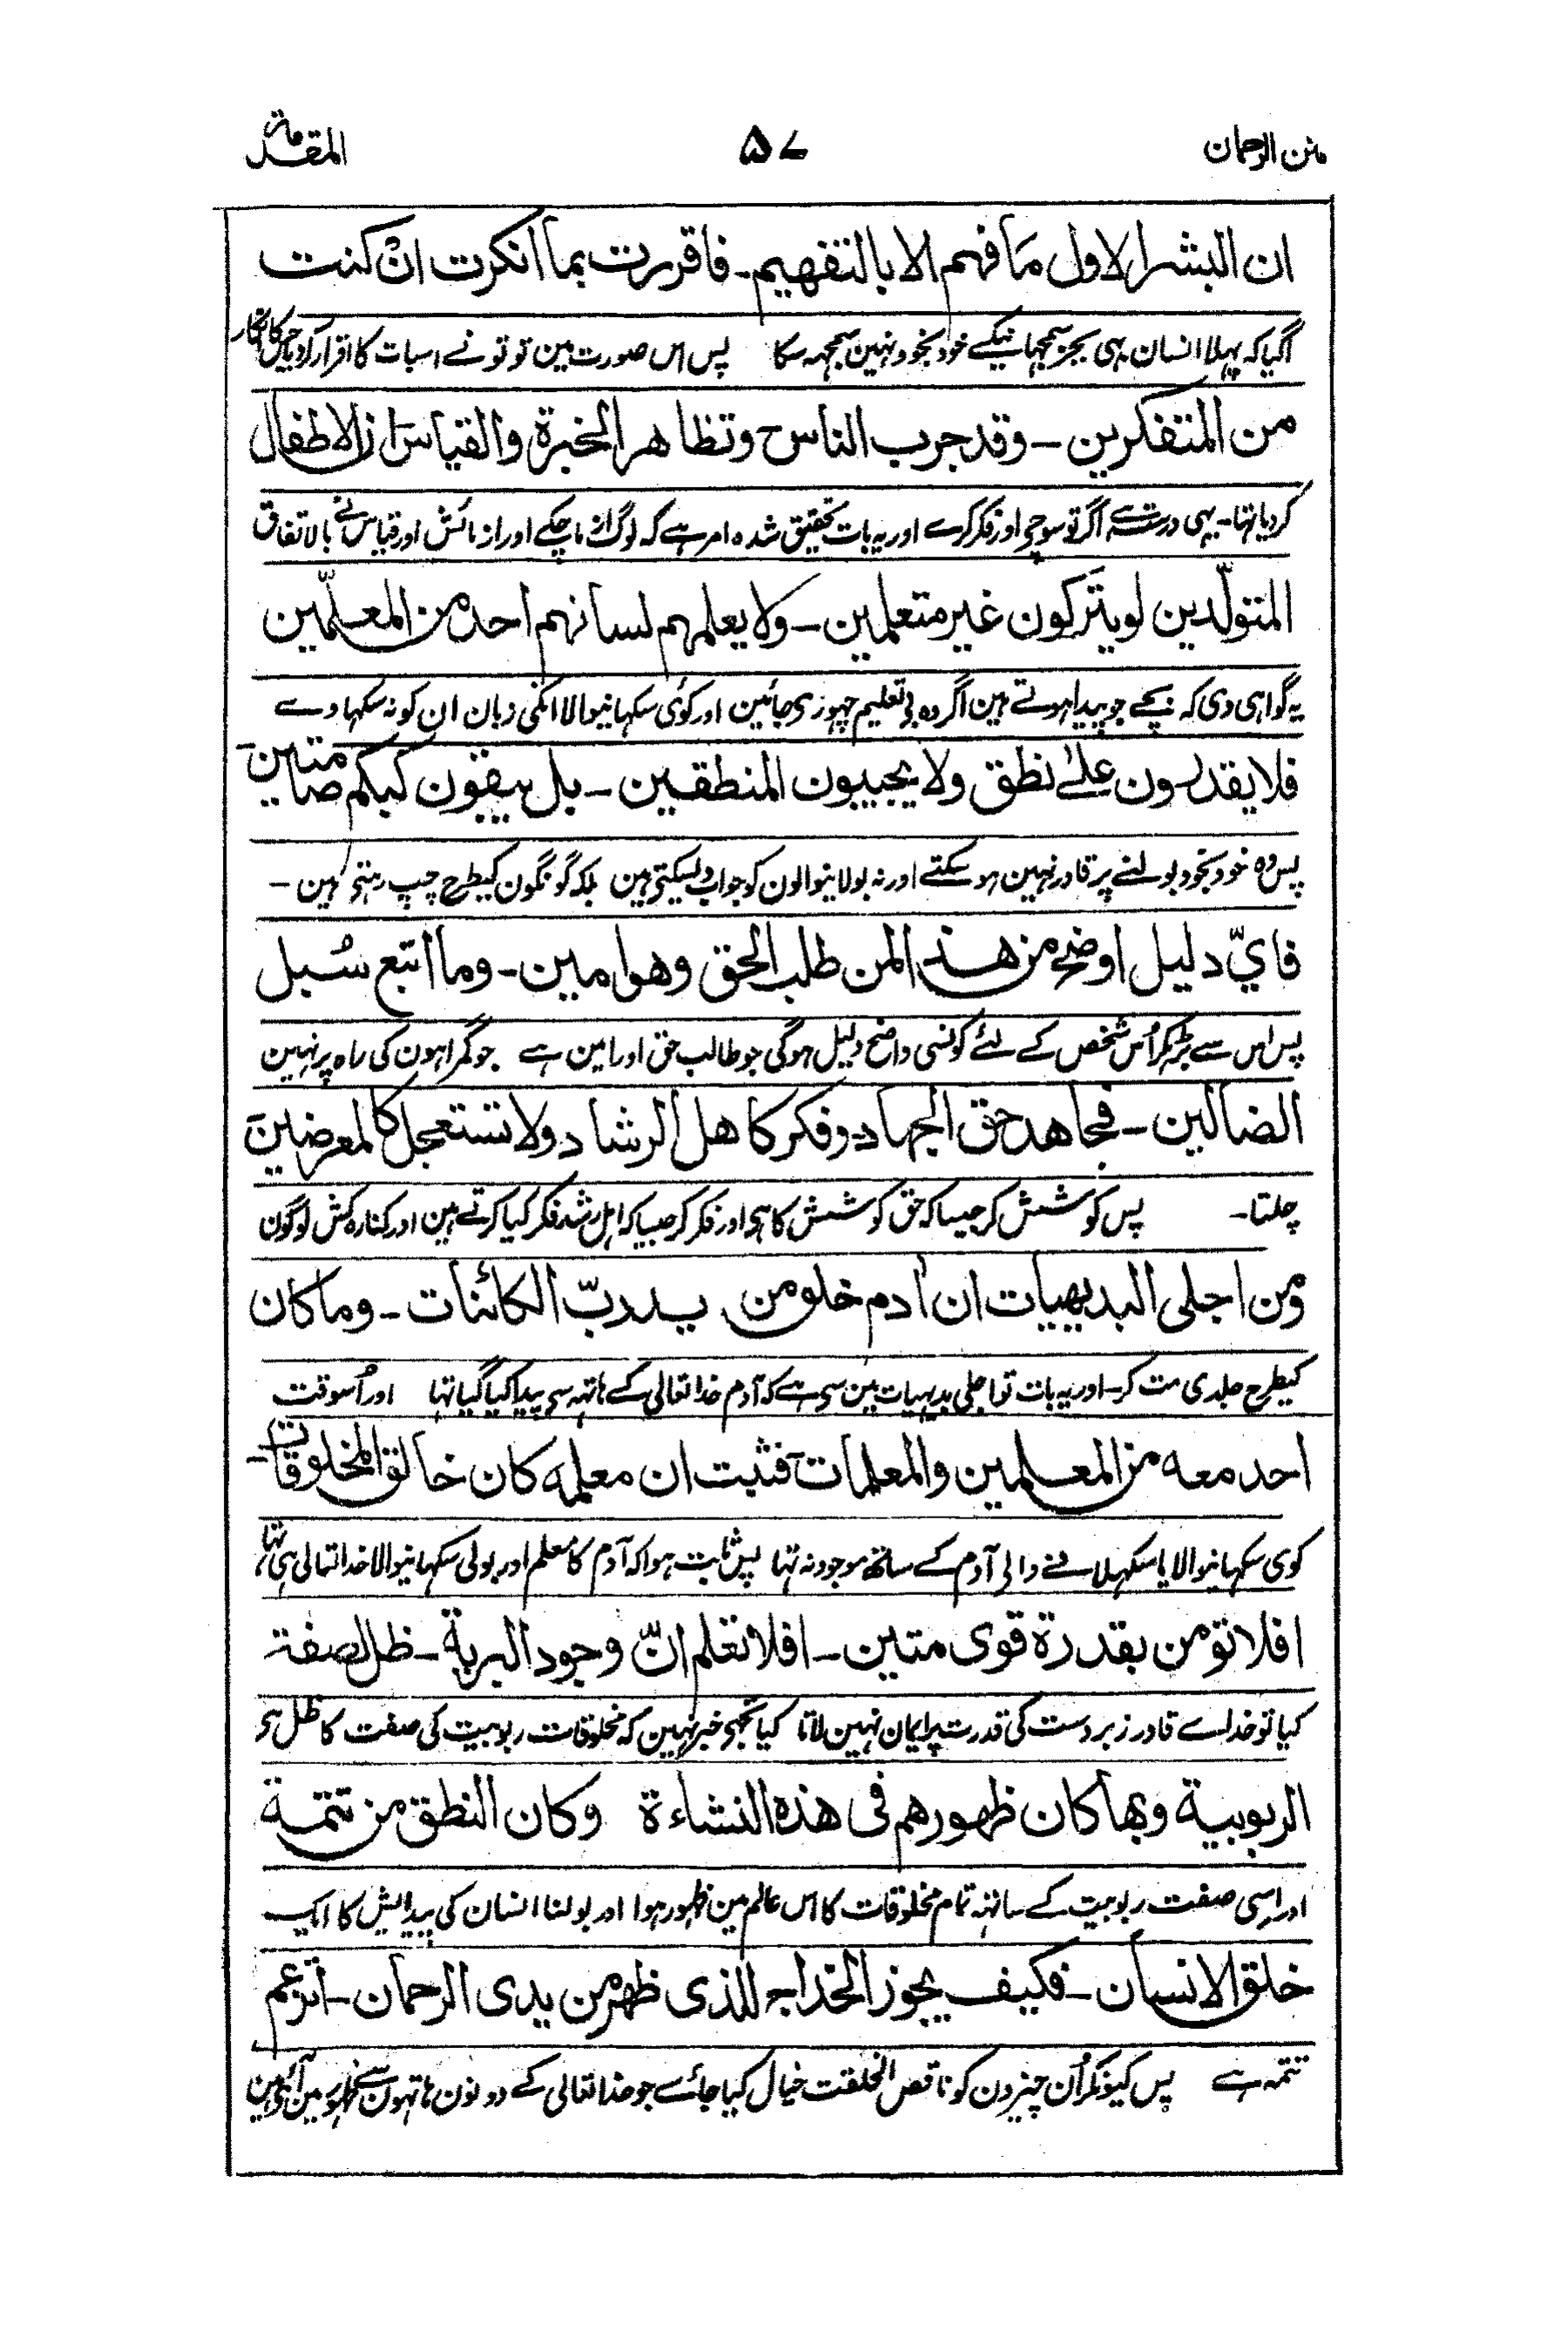 منن الرحمان ۵۷ المقدمة
ان البشر الاول ما فهم الا بالتفهيم۔ فاقررت بما انكرت ان كنت
آگیا کہ پہلا انسان بہی بجز سمجہانیکے خود بخود نہین سمجہہ سکا پس اس صورت مین تو تو نے اسبات کا اقرار کر دیا جس کا انکار
من المتفكرين ـ وقد جرب الناس وتظاهر الخبرة والقياس ان الاطفال
کر دیا تہا۔ یہی درست ہے اگر تو سوچے اور فکر کرے اور یہ بات تحقیق شدہ امر ہے کہ لوگ آزما چکے اور ازمائش اور قیاس نے بالاتفاق
المتولّدين لو يتركون غير متعلمين ـ ولا يعلمهم لسانهم احد من المعلّمين
یہ گواہی دی کہ بچے جو پیدا ہوتے ہین اگر وہ بے تعلیم چہوڑی جائین اور کوئی سکہانیوالا انکی زبان ان کو نہ سکہاوے
فلا يقدرون على نطق ولا يجيبون المنطقين ـ بل يبقون كبكم صامتين
پس وہ خود بخود بولنے پر قادر نہین ہو سکتے اور نہ بولانیوالون کو جواب دیسکتی ہین بلکہ گونگون کیطرح چپ رہتی ہین ـ
فايّ دليل اوضح من هذا لمن طلب الحق وهو امين ـ وما اتبع سُبل
پس اس سے بڑہکر اُس شخص کے لئے کونسی واضح دلیل ہوگی جو طالب حق اور امین ہے جو گمراہون کی راہ پر نہین
الضالين ـ فجاهد حق الجهاد وفكر كاهل الرشاد ولا تستعجل كالمعرضين
چلتا۔ پس کوشش کر جیسا کہ حق کوشش کا ہی اور فکر کر جیسا کہ اہل رشد فکر کیا کرتے ہین اور کنارہ کش لوگون
ومن اجلى البديهيات ان آدم خلق من يد ربّ الكائنات ـ وما كان
کیطرح جلدی مت کر۔ اور یہ بات تو اجلی بدیہیات مین سی ہے کہ آدم خدا تعالی کے ہاتہہ سی پیدا کیا گیا تہا اور اُسوقت
احد معه من المعلمين والمعلمات فثبت ان معلمه كان خالق المخلوقات ـ
کوی سکہانیوالا یا سکہلانے والی آدم کے ساتھ موجود نہ تہا پس ثابت ہوا کہ آدم کا معلم اور بولی سکہانیوالا خدا تعالی ہی تہا،
افلا تؤمن بقدرة قوى متين ـ افلا تعلم انّ وجود البرية ـ ظل لصفة
کیا تو خداے قادر زبردست کی قدرت پر ایمان نہین لاتا کیا تجہی خبر نہین کہ مخلوقات ربوبیت کی صفت کا ظل ہی
الربوبية وبها كان ظهورهم فى هذه النشاءة وكان النطق من تتمة
اور اسی صفت ربوبیت کے ساتہہ تمام مخلوقات کا اس عالم مین ظہور ہوا اور بولنا انسان کی پیدایش کا ایک
خلق الانسان ـ فكيف يجوز الخداج للذى ظهر من يدى الرحمان ـ اتزعم
تتمہ ہے پس کیونکر اُن چیزون کو ناقص الخلقت خیال کیا جائے جو خدا تعالی کے دونون ہاتہون سے ظہور مین آئی ہین